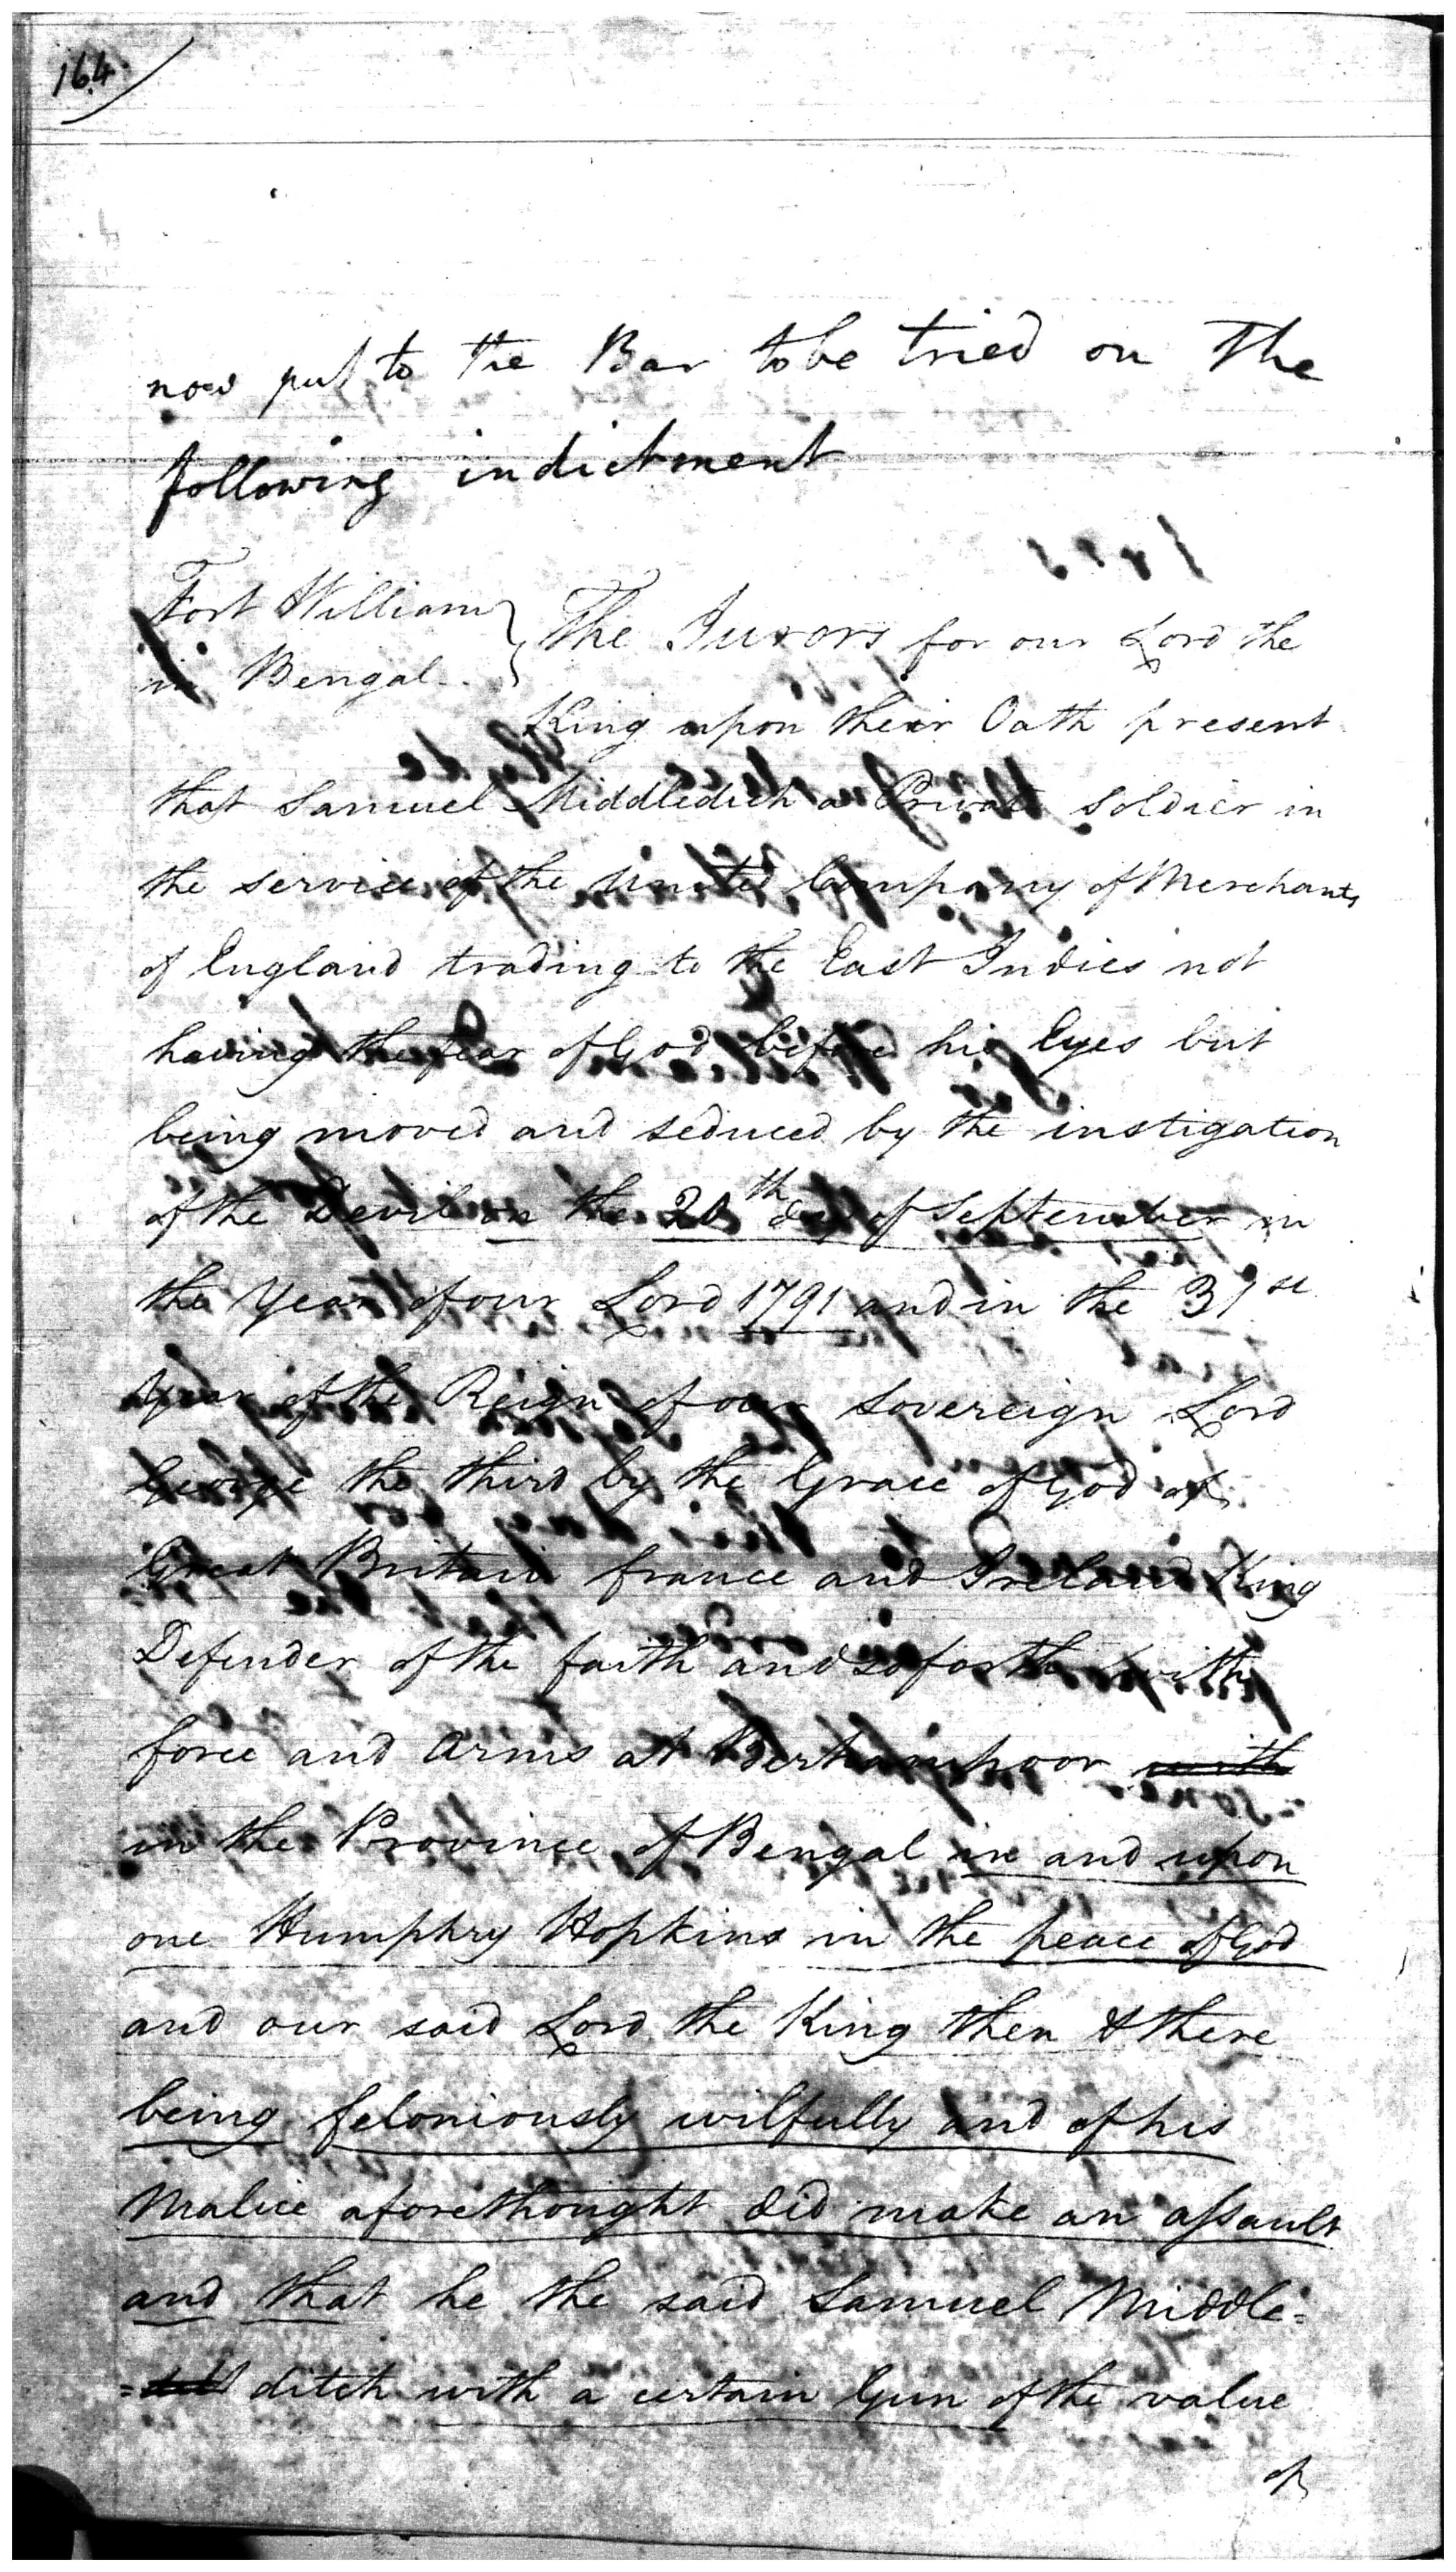 164
now put to the Bar to be tried on The
following indictment
Fort William
in Bengal
The Jurors for our Lord the
King upon their Oath present
that Samuel Middledich a Private Soldier in
the service of the United Company of Merchants
of England trading to the East Indies not
having the fear of God before his Eyes but
being moved and seduced by the instigation
of the Devil on the 20th day of September in
the Year of our Lord 1791 and in the 31st
Year of the Reign of our Sovereign Lord
George the third by the Grace of God of
Great Britain france and Ireland King
Defender of the faith and so forth with
force and Arms at Berhampoor with
in the Province of Bengal in and upon
one Humphry Hopkins in the peace of God
and our said Lord the King then & there
being feloniously wilfully and of his
Malice aforethought did make an assault
and that he the said Samuel Middle=
= ditch with a certain Gun of the value
of